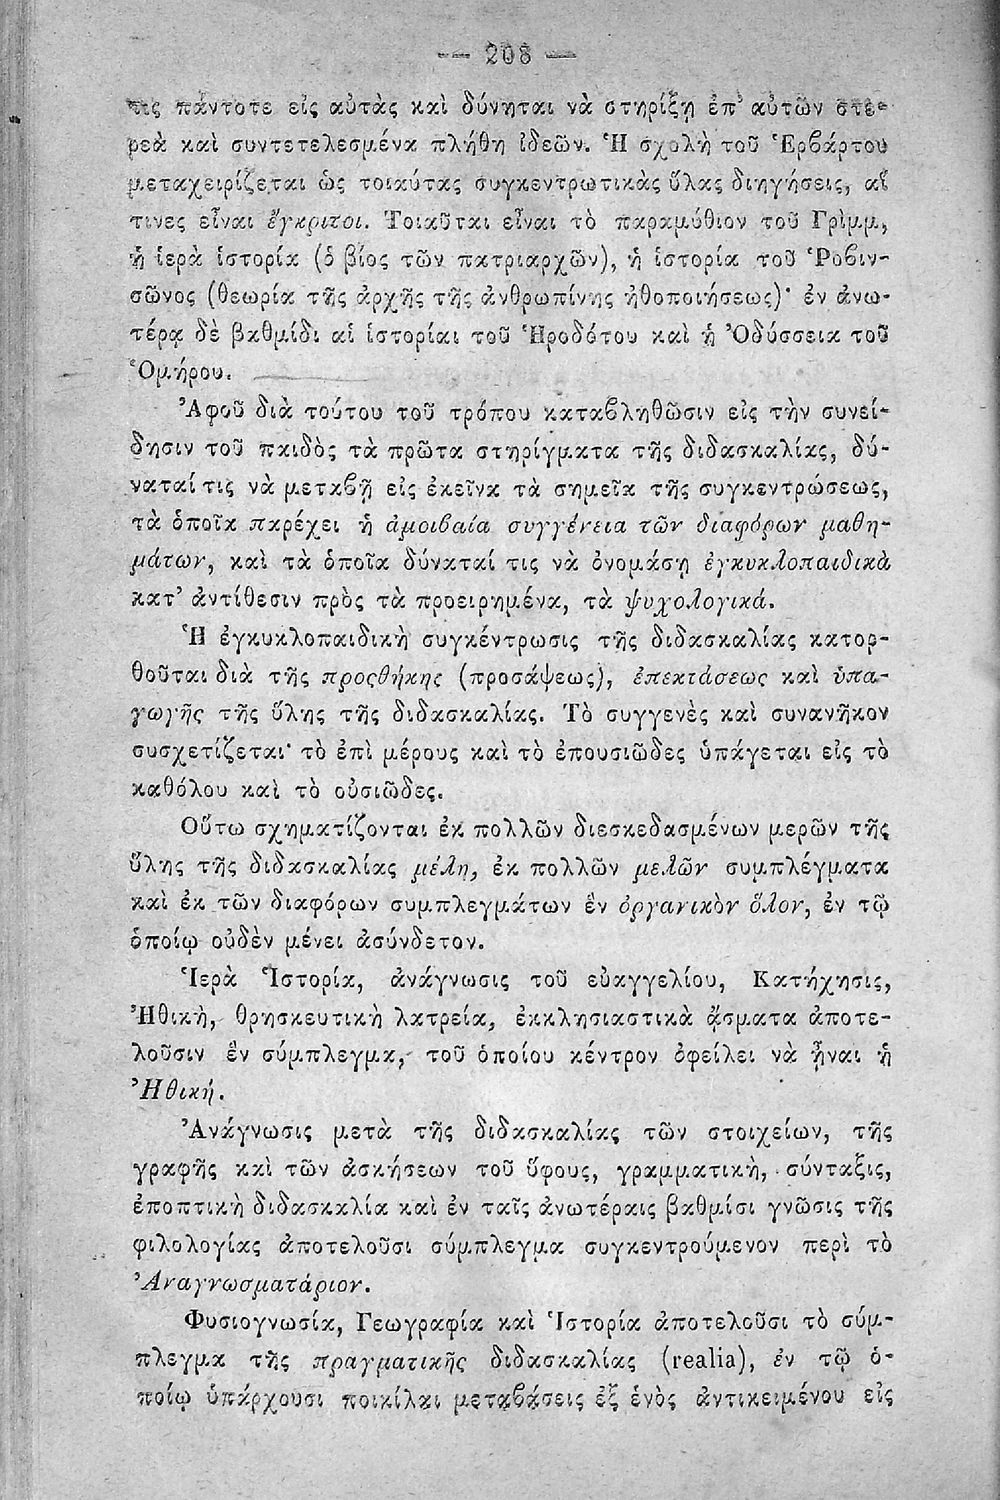 — 208 —
τις πάντοτε εἰς αὐτὰς καὶ δύνηται νὰ στηρίξῃ ἐπ' αὐτῶν στε-
ρεὰ καὶ συντετελεσμένα πλήθη ἰδεῶν. Ἡ σχολὴ τοῦ Ἑρβάρτου
μεταχειρίζεται ὡς τοιαύτας συγκεντρωτικὰς ὕλας διηγήσεις, αἵ
τινες εἶναι ἔγκριτοι. Τοιαῦται εἶναι τὸ παραμύθιον τοῦ Γρὶμμ,
ἡ ἱερὰ ἱστορία (ὁ βίος τῶν πατριαρχῶν), ἡ ἱστορία τοῦ Ῥοβιν-
σῶνος (θεωρία τῆς ἀρχῆς τῆς ἀνθρωπίνης ἠθοποιήσεως)· ἐν ἀνω-
τέρᾳ δὲ βαθμίδι αἱ ἱστορίαι τοῦ Ἡροδότου καὶ ἡ Ὀδύσσεια τοῦ
Ὁμήρου.
Ἀφοῦ διὰ τούτου τοῦ τρόπου καταβληθῶσιν εἰς τὴν συνεί-
δησιν τοῦ παιδὸς τὰ πρῶτα στηρίγματα τῆς διδασκαλίας, δύ-
ναταί τις νὰ μεταβῇ εἰς ἐκεῖνα τὰ σημεῖα τῆς συγκεντρώσεως,
τὰ ὁποῖα παρέχει ἡ ἀμοιβαία συγγένεια τῶν διαφόρων μαθη-
μάτων, καὶ τὰ ὁποῖα δύναταί τις νὰ ὀνομάσῃ ἐγκυκλοπαιδικὰ
κατ' ἀντίθεσιν πρὸς τὰ προειρημένα, τὰ ψυχολογικά.
Ἡ ἐγκυκλοπαιδικὴ συγκέντρωσις τῆς διδασκαλίας κατορ-
θοῦται διὰ τῆς προςθήκης (προσάψεως), ἐπεκτάσεως καὶ ὑπα-
γωγῆς τῆς ὕλης τῆς διδασκαλίας. Τὸ συγγενὲς καὶ συνανῆκον
συσχετίζεται· τὸ ἐπὶ μέρους καὶ τὸ ἐπουσιῶδες ὑπάγεται εἰς τὸ
καθόλου καὶ τὸ οὐσιῶδες.
Οὕτω σχηματίζονται ἐκ πολλῶν διεσκεδασμένων μερῶν τῆς
ὕλης τῆς διδασκαλίας μέλη, ἐκ πολλῶν μελῶν συμπλέγματα
καὶ ἐκ τῶν διαφόρων συμπλεγμάτων ἓν ὀργανικὸν ὅλον, ἐν τῷ
ὁποίῳ οὐδὲν μένει ἀσύνδετον.
Ἱερὰ Ἱστορία, ἀνάγνωσις τοῦ εὐαγγελίου, Κατήχησις,
Ἠθικὴ, θρησκευτικὴ λατρεία, ἐκκλησιαστικὰ ᾄσματα ἀποτε-
λοῦσιν ἓν σύμπλεγμα, τοῦ ὁποίου κέντρον ὀφείλει νὰ ᾖναι ἡ
Ἠθική.
Ἀνάγνωσις μετὰ τῆς διδασκαλίας τῶν στοιχείων, τῆς
γραφῆς καὶ τῶν ἀσκήσεων τοῦ ὕφους, γραμματικὴ, σύνταξις,
ἐποπτικὴ διδασκαλία καὶ ἐν ταῖς ἀνωτέραις βαθμίσι γνῶσις τῆς
φιλολογίας ἀποτελοῦσι σύμπλεγμα συγκεντρούμενον περὶ τὸ
Ἀναγνωσματάριον.
Φυσιογνωσία, Γεωγραφία καὶ Ἱστορία ἀποτελοῦσι τὸ σύμ-
πλεγμα τῆς πραγματικῆς διδασκαλίας (realia), ἐν τῷ ὁ-
ποίῳ ὑπάρχουσι ποικίλαι μεταβάσεις ἐξ ἑνὸς ἀντικειμένου εἰς